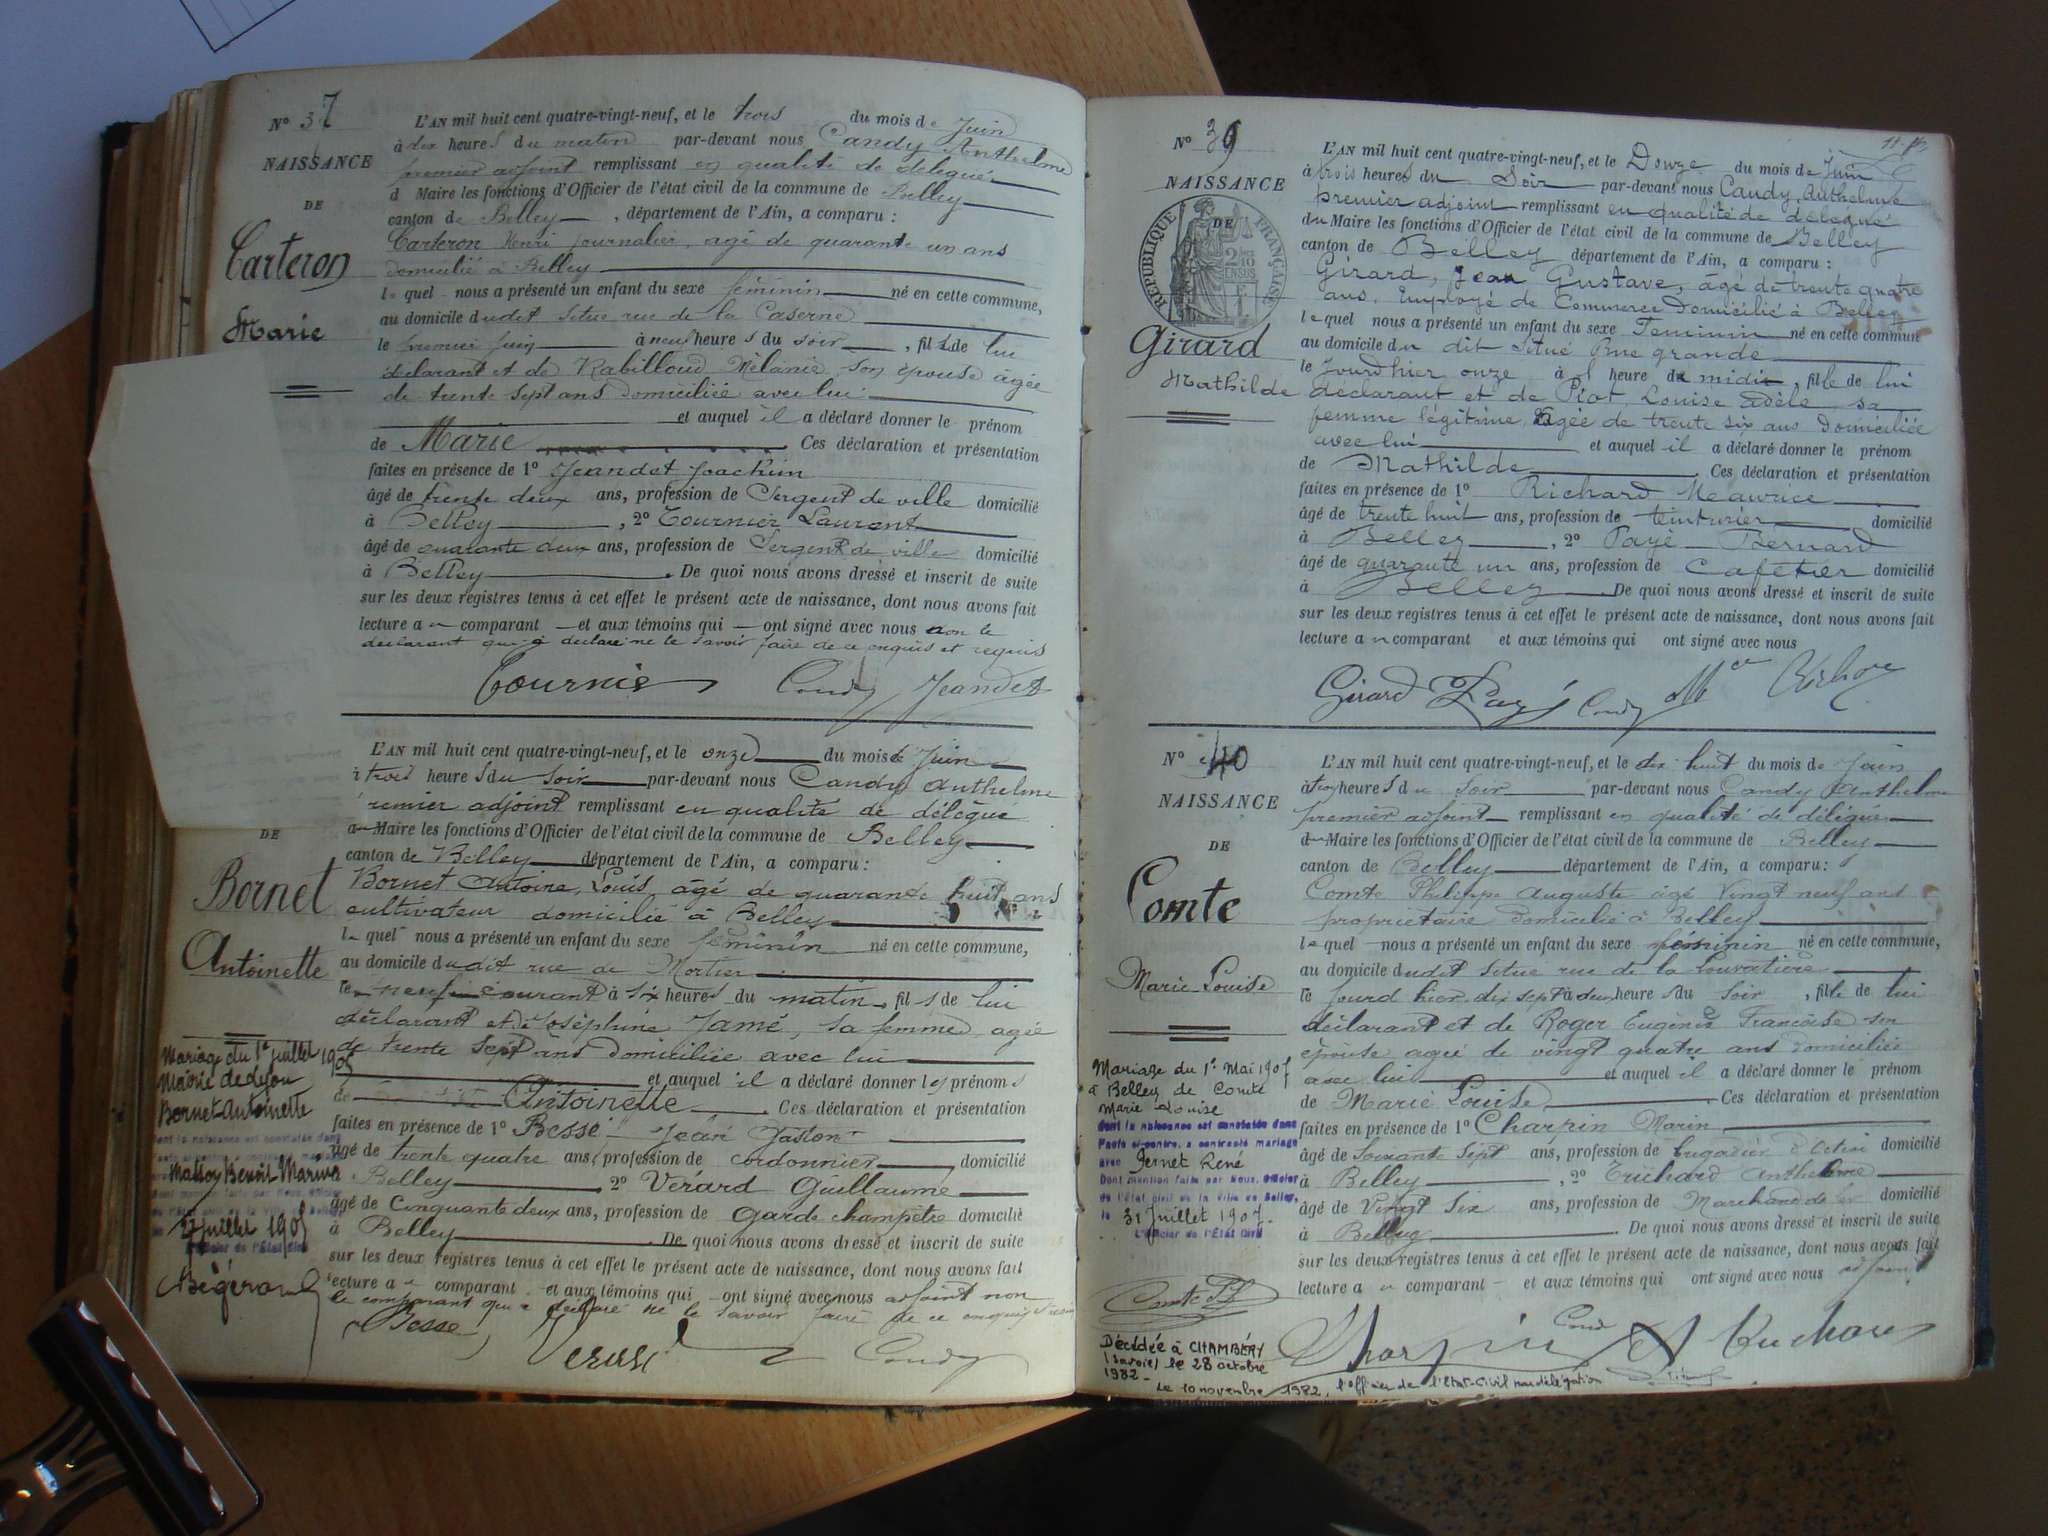 N° 37
NAISSANCE
DE
Carteron
Marie
L'AN mil huit cent quatre-vingt-neuf, et le trois du mois de Juin
à dix heures du matin par-devant nous Candy Anthelme
premier adjoint remplissant en qualité de délégué
d Maire les fonctions d'Officier de l'état civil de la commune de Belley
canton de Belley, département de l'Ain, a comparu :
Carteron Henri journalier, agé de quarante un ans
domicilié à Belley
lequel nous a présenté un enfant du sexe féminin né en cette commune,
au domicile dudit situé rue de la Caserne
le premier juin à neuf heures du soir, fille de lui
déclarant et de Rabilloud Mélanie, son épouse âgée
de trente sept ans domiciliée avec lui
et auquel il a déclaré donner le prénom
de Marie. Ces déclaration et présentation
faites en présence de 1° Jeandet Joachim
âgé de trente deux ans, profession de Sergent de ville domicilié
à Belley, 2° Tournier Laurent
âgé de quarante deux ans, profession de Sergent de ville domicilié
à Belley. De quoi nous avons dressé et inscrit de suite
sur les deux registres tenus à cet effet le présent acte de naissance, dont nous avons fait
lecture au comparant et aux témoins qui ont signé avec nous non le
déclarant qui a déclaré ne le savoir faire de ce enquis et requis
Tournier Candy Jeandet
DE
Bornet
Antoinette
L'AN mil huit cent quatre-vingt-neuf, et le onze du mois de Juin
à trois heures du soir par-devant nous Candy Anthelme
remier adjoint remplissant en qualité de délégué
au Maire les fonctions d'Officier de l'état civil de la commune de Belley
canton de Belley département de l'Ain, a comparu :
Bornet Antoine, Louis, âgé de quarante huit ans
cultivateur domicilié à Belley
lequel nous a présenté un enfant du sexe féminin né en cette commune,
au domicile dudit rue de Mortier
le neuf courant à six heures du matin, fils de lui
déclarant et de Joséphine Jamé, sa femme, agée
de trente sept ans domiciliée avec lui
et auquel il a déclaré donner les prénoms
de Antoinette. Ces déclaration et présentation
faites en présence de 1° Besse Jean Gaston
âgé de trente quatre ans, profession de cordonnier domicilié
Belley 2° Vérard Guillaume
âgé de Cinquante deux ans, profession de garde champêtre domicilié
à Belley De quoi nous avons dressé et inscrit de suite
sur les deux registres tenus à cet effet le présent acte de naissance, dont nous avons fait
lecture au comparant et aux témoins qui ont signé avec nous adjoint non
le comparant qui a déclaré ne le savoir faire de ce enquis et requis
Besse Verard Candy
Mariage du 1er juillet 1905
Mairie de Lyon
Bornet Antoinette
dont la naissance est constatée dans
Benoit Marius
juillet 1905
l'Officier de l'État Civil
N° 39
NAISSANCE
DE
RÉPUBLIQUE FRANÇAISE
Girard
Mathilde
L'AN mil huit cent quatre-vingt-neuf, et le Douze du mois de Juin
à trois heures du Soir par-devant nous Candy, Anthelme
premier adjoint remplissant en qualité de délégué
du Maire les fonctions d'Officier de l'état civil de la commune de Belley
canton de Belley département de l'Ain, a comparu :
Girard, Jean Gustave, âgé de trente quatre
ans, Employé de Commerce domicilié à Belley
lequel nous a présenté un enfant du sexe Féminin né en cette commune
au domicile du dit situé Rue grande
le jourd'hier onze à 1 heure de midi, fille de lui
déclarant et de Piot, Louise adèle sa
femme légitime, agée de trente six ans domiciliée
avec lui et auquel il a déclaré donner le prénom
de Mathilde. Ces déclaration et présentation
faites en présence de 1° Richard Maurice
âgé de trente huit ans, profession de teinturier domicilié
à Belley, 2° Payé Bernard
âgé de quarante un ans, profession de Cafetier domicilié
à Belley De quoi nous avons dressé et inscrit de suite
sur les deux registres tenus à cet effet le présent acte de naissance, dont nous avons fait
lecture au comparant et aux témoins qui ont signé avec nous
Girard Payé Candy Mce Richard
N° 40
NAISSANCE
DE
Comte
Marie Louise
L'AN mil huit cent quatre-vingt-neuf, et le dix huit du mois de Juin
à trois heures du Soir par-devant nous Candy Anthelme
premier adjoint remplissant en qualité de délégué
du Maire les fonctions d'Officier de l'état civil de la commune de Belley
canton de Belley département de l'Ain, a comparu :
Comte Philippe Auguste âgé Vingt neuf ans
propriétaire domicilié à Belley
lequel nous a présenté un enfant du sexe féminin né en cette commune,
au domicile dudit situé rue de la Louvatière
le jourd'hier dix sept à deux heures du Soir, fille de lui
déclarant et de Roger Eugénie Françoise son
épouse agée de vingt quatre ans domiciliée
avec lui et auquel il a déclaré donner le prénom
de Marie Louise. Ces déclaration et présentation
faites en présence de 1° Charpin Marin
âgé de Soixante Sept ans, profession de brigadier d'Octroi domicilié
à Belley, 2° Truchard Anthelme
âgé de Vingt Six ans, profession de Marchand de fer domicilié
à Belley. De quoi nous avons dressé et inscrit de suite
sur les deux registres tenus à cet effet le présent acte de naissance, dont nous avons fait
lecture au comparant et aux témoins qui ont signé avec nous adjoint
Charpin Candy A Truchard
Mariage du 1er Mai 1907
à Belley de Comte
Marie Louise
dont la naissance est constatée dans
l'acte ci-contre, a contracté mariage
avec Jernet René
Dont mention faite par Nous, Officier
de l'État civil de la Ville de Belley,
le 31 Juillet 1907.
L'Officier de l'État Civil
Comte Ph
Décédée à CHAMBÉRY
(Savoie) le 28 octobre
1982 -
Le 10 novembre 1982, l'officier de l'Etat-Civil par délégation